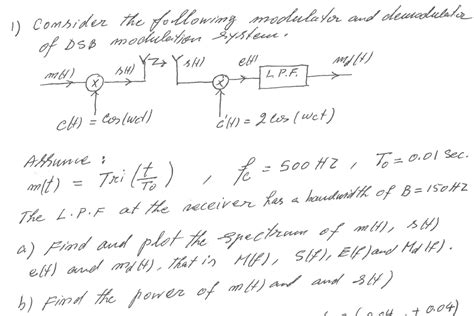 1) Consider the following modulator and demodulator
of DSB modulation system.
m(t) s(t) s(t) e(t) L.P.F. md(t)
c(t) = Cos(wct) c'(t) = 2 cos (wct)
Assume :
m(t) = Tri (t/To) , fc = 500 HZ , To = 0.01 Sec.
The L.P.F at the receiver has a bandwidth of B = 150HZ
a) Find and plot the spectrum of m(t), s(t)
e(t) and md(t), that is M(f), S(f), E(f) and Md(f).
b) Find the power of m(t) and and s(t)
(0.04 , + 0.04)